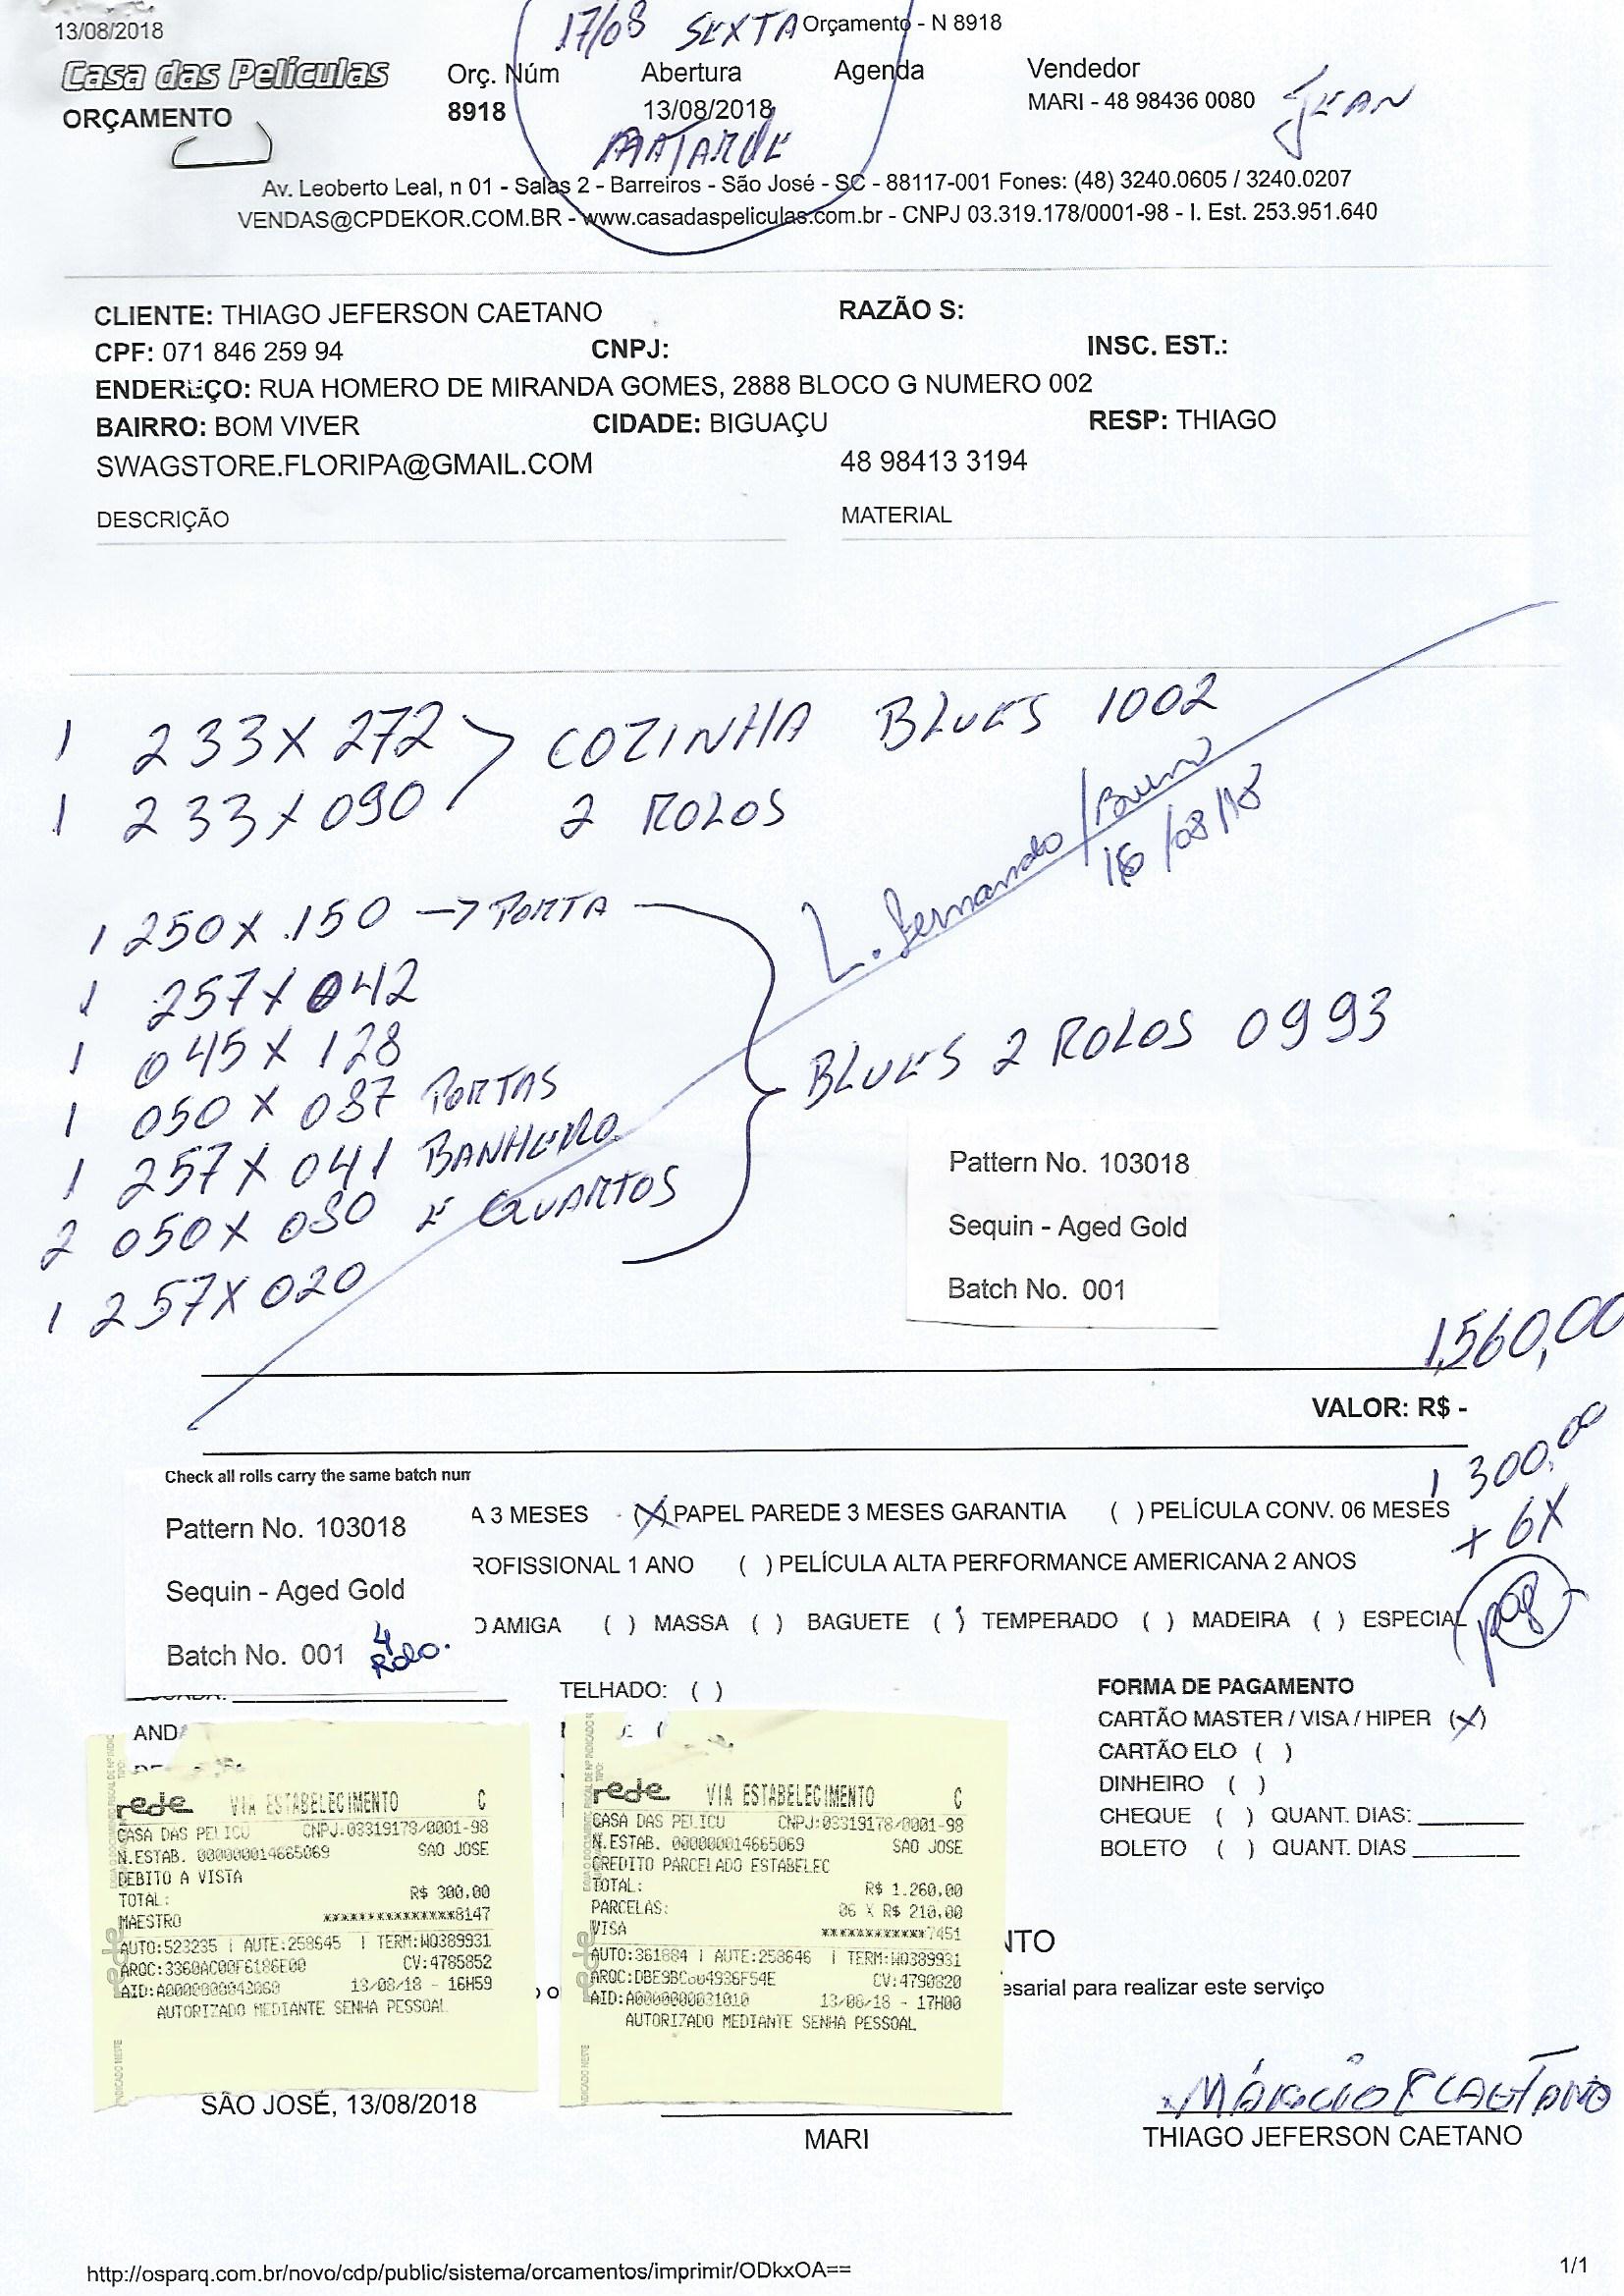 13/08/2018
17/08 SEXTA
Orçamento - N 8918
Casa das Películas
ORÇAMENTO
Orç. Núm
8918
Abertura
13/08/2018
Agenda
Vendedor
MARI - 48 98436 0080
JEAN
Av. Leoberto Leal, n 01 - Salas 2 - Barreiros - São José - SC - 88117-001 Fones: (48) 3240.0605 / 3240.0207
VENDAS@CPDEKOR.COM.BR - www.casadaspeliculas.com.br - CNPJ 03.319.178/0001-98 - I. Est. 253.951.640
CLIENTE: THIAGO JEFERSON CAETANO RAZÃO S:
CPF: 071 846 259 94 CNPJ: INSC. EST.:
ENDEREÇO: RUA HOMERO DE MIRANDA GOMES, 2888 BLOCO G NUMERO 002
BAIRRO: BOM VIVER CIDADE: BIGUAÇU RESP: THIAGO
SWAGSTORE.FLORIPA@GMAIL.COM 48 98413 3194
DESCRIÇÃO MATERIAL
1 233 X 272 COZINHA BLUES 1002
1 233 X 090 2 ROLOS
L. Fernando / Bruno
16/08/18
1 250 X .150 → PORTA
1 257 X 042
1 045 X 128
BLUES 2 ROLOS 0993
1 050 X 087 PORTAS
1 257 X 041 BANHEIRO
2 050 X 080 E QUARTOS
1 257 X 020
Pattern No. 103018
Sequin - Aged Gold
Batch No. 001
1,560,00
VALOR: R$ -
1 300,00
+ 6X
pag
Check all rolls carry the same batch num
Pattern No. 103018
Sequin - Aged Gold
Batch No. 001 4 Rolo.
A 3 MESES (X) PAPEL PAREDE 3 MESES GARANTIA ( ) PELÍCULA CONV. 06 MESES
ROFISSIONAL 1 ANO ( ) PELÍCULA ALTA PERFORMANCE AMERICANA 2 ANOS
O AMIGA ( ) MASSA ( ) BAGUETE ( ) TEMPERADO ( ) MADEIRA ( ) ESPECIAL
TELHADO: ( )
AND
FORMA DE PAGAMENTO
CARTÃO MASTER / VISA / HIPER (X)
CARTÃO ELO ( )
DINHEIRO ( )
CHEQUE ( ) QUANT. DIAS:
BOLETO ( ) QUANT. DIAS
rede VIA ESTABELECIMENTO C
CASA DAS PELICU CNPJ:03319178/0001-98
N.ESTAB. 000000014665069 SAO JOSE
DEBITO A VISTA
TOTAL: R$ 300,00
MAESTRO ***************8147
AUTO:523235 | AUTE:258645 | TERM:WQ389931
ARQC:3360AC00F6186E00 CV:4785852
AID:A0000000043060 13/08/18 - 16H59
AUTORIZADO MEDIANTE SENHA PESSOAL
rede VIA ESTABELECIMENTO C
CASA DAS PELICU CNPJ:03319178/0001-98
N.ESTAB. 000000014665069 SAO JOSE
CREDITO PARCELADO ESTABELEC
TOTAL: R$ 1.260,00
PARCELAS: 06 X R$ 210,00
VISA ************7451
AUTO:361884 | AUTE:258646 | TERM:WQ389931
CV:4790820
AID:A0000000031010 13/08/18 - 17H00
AUTORIZADO MEDIANTE SENHA PESSOAL
NTO
esarial para realizar este serviço
SÃO JOSÉ, 13/08/2018
MARI
MÁRCIO F CAETANO
THIAGO JEFERSON CAETANO
http://osparq.com.br/novo/cdp/public/sistema/orcamentos/imprimir/ODkxOA== 1/1